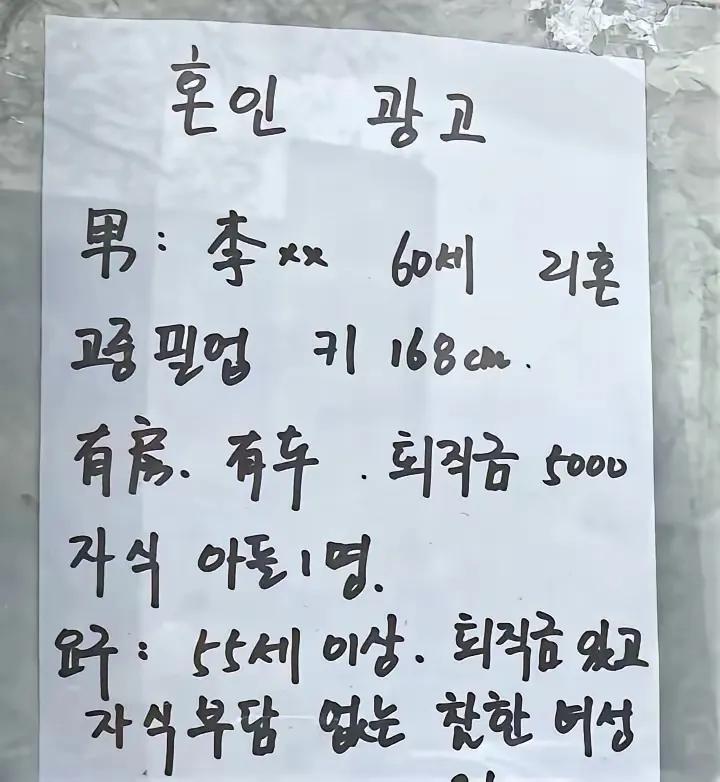 혼인 광고
男: 李xx 60세 리혼
고중필업 키 168cm.
有房. 有车. 퇴직금 5000
자식 아들1명.
요구: 55세 이상. 퇴직금 있고
자식부담 없는 참한 여성